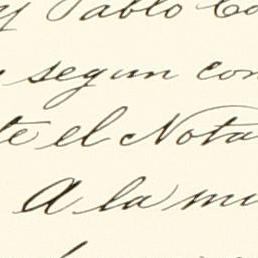 y Pablo Co
segun con
te el Nota
A la mi